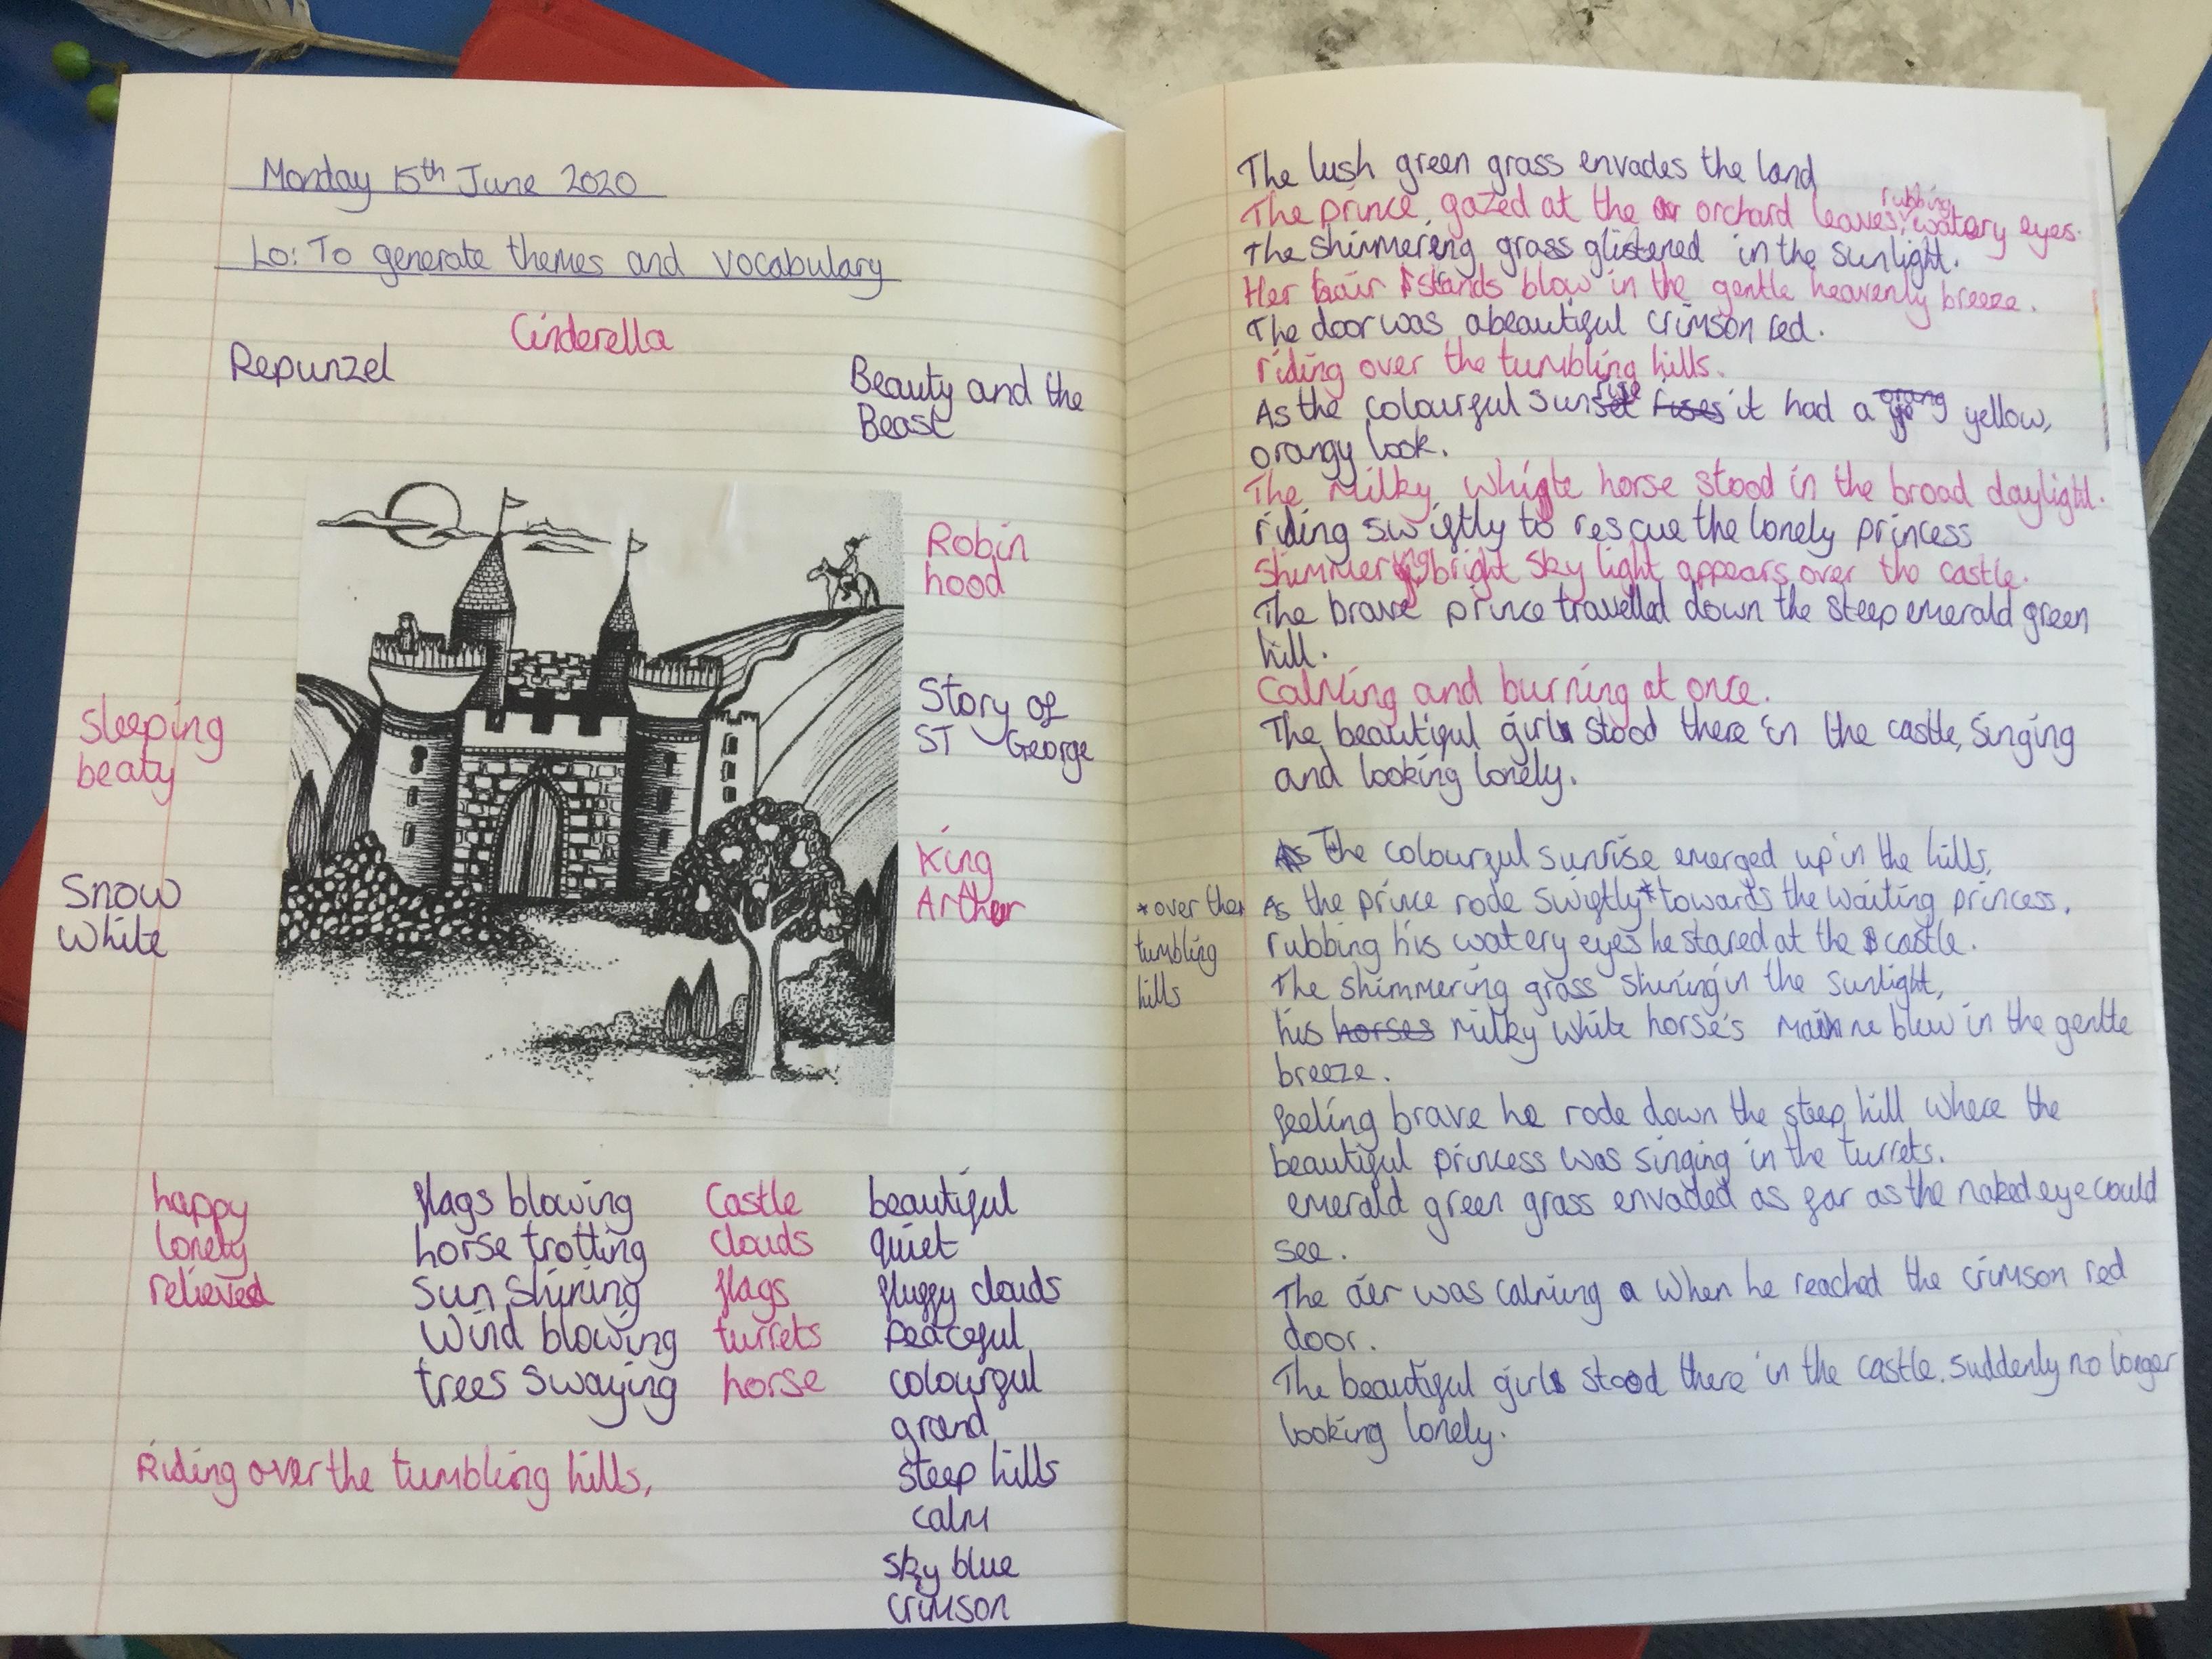 Monday 15th June 2020
Lo: To generate themes and vocabulary
Cinderella
Repunzel
Beauty and the
Beast
Robin
hood
Story of
ST George
sleeping
beaty
King
Arther
Snow
White
happy
lonely
relieved
flags blowing
horse trotting
sun shining
Wind blowing
trees swaying
Castle
clouds
flags
turrets
horse
beautiful
quiet
fluffy clouds
peaceful
colourful
grand
steep hills
calm
sky blue
crimson
Riding over the tumbling hills,
The lush green grass envades the land
The prince gazed at the orchard leaves, rubbing watery eyes.
The shimmering grass glistened in the sunlight.
Her hair stands blow in the gentle heavenly breeze.
The door was a beautiful crimson red.
riding over the tumbling hills.
As the colourful sunrise rises it had a orang yellow,
orangy look.
The Milky white horse stood in the broad daylight.
riding swiftly to rescue the lonely princess
Shimmering bright sky light appears over the castle.
The brave prince travelled down the steep emerald green
hill.
Calming and burning at once.
The beautiful girl stood there in the castle, singing
and looking lonely.
As The colourful sunrise emerged up in the hills,
As the prince rode swiftly* towards the waiting princess.
* over the
tumbling
hills
rubbing his watery eyes he stared at the castle.
The shimmering grass shining in the sunlight,
his horses Milky white horse's mane blew in the gentle
breeze.
feeling brave he rode down the steep hill where the
beautiful princess was singing in the turrets.
emerald green grass envaded as far as the naked eye could
see.
The aer was calming when he reached the crimson red
door.
The beautiful girl stood there in the castle. suddenly no longer
looking lonely.